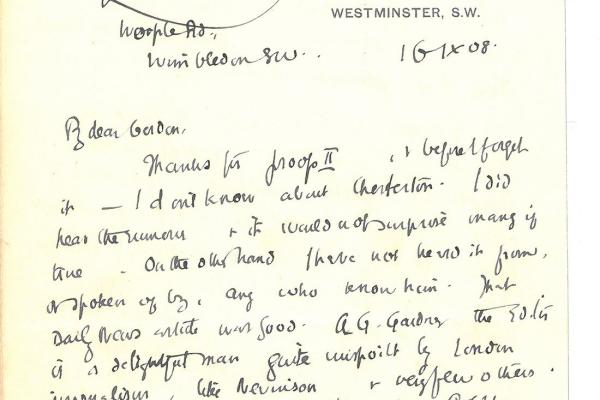 WESTMINSTER, S.W.
Worple Rd.,
Wimbledon SW.
16 IX 08.
My dear Gordon,
Thanks for proofs II, & before I forget
it — I don't know about Chesterton. I did
hear the rumour & it would not surprise many if
true. On the other hand I have not heard it from,
or spoken of by, any who know him. That
Daily News article was good. A.G. Gardner the Editor
is a delightful man quite unspoilt by London
journalism, like Nevinson & very few others.